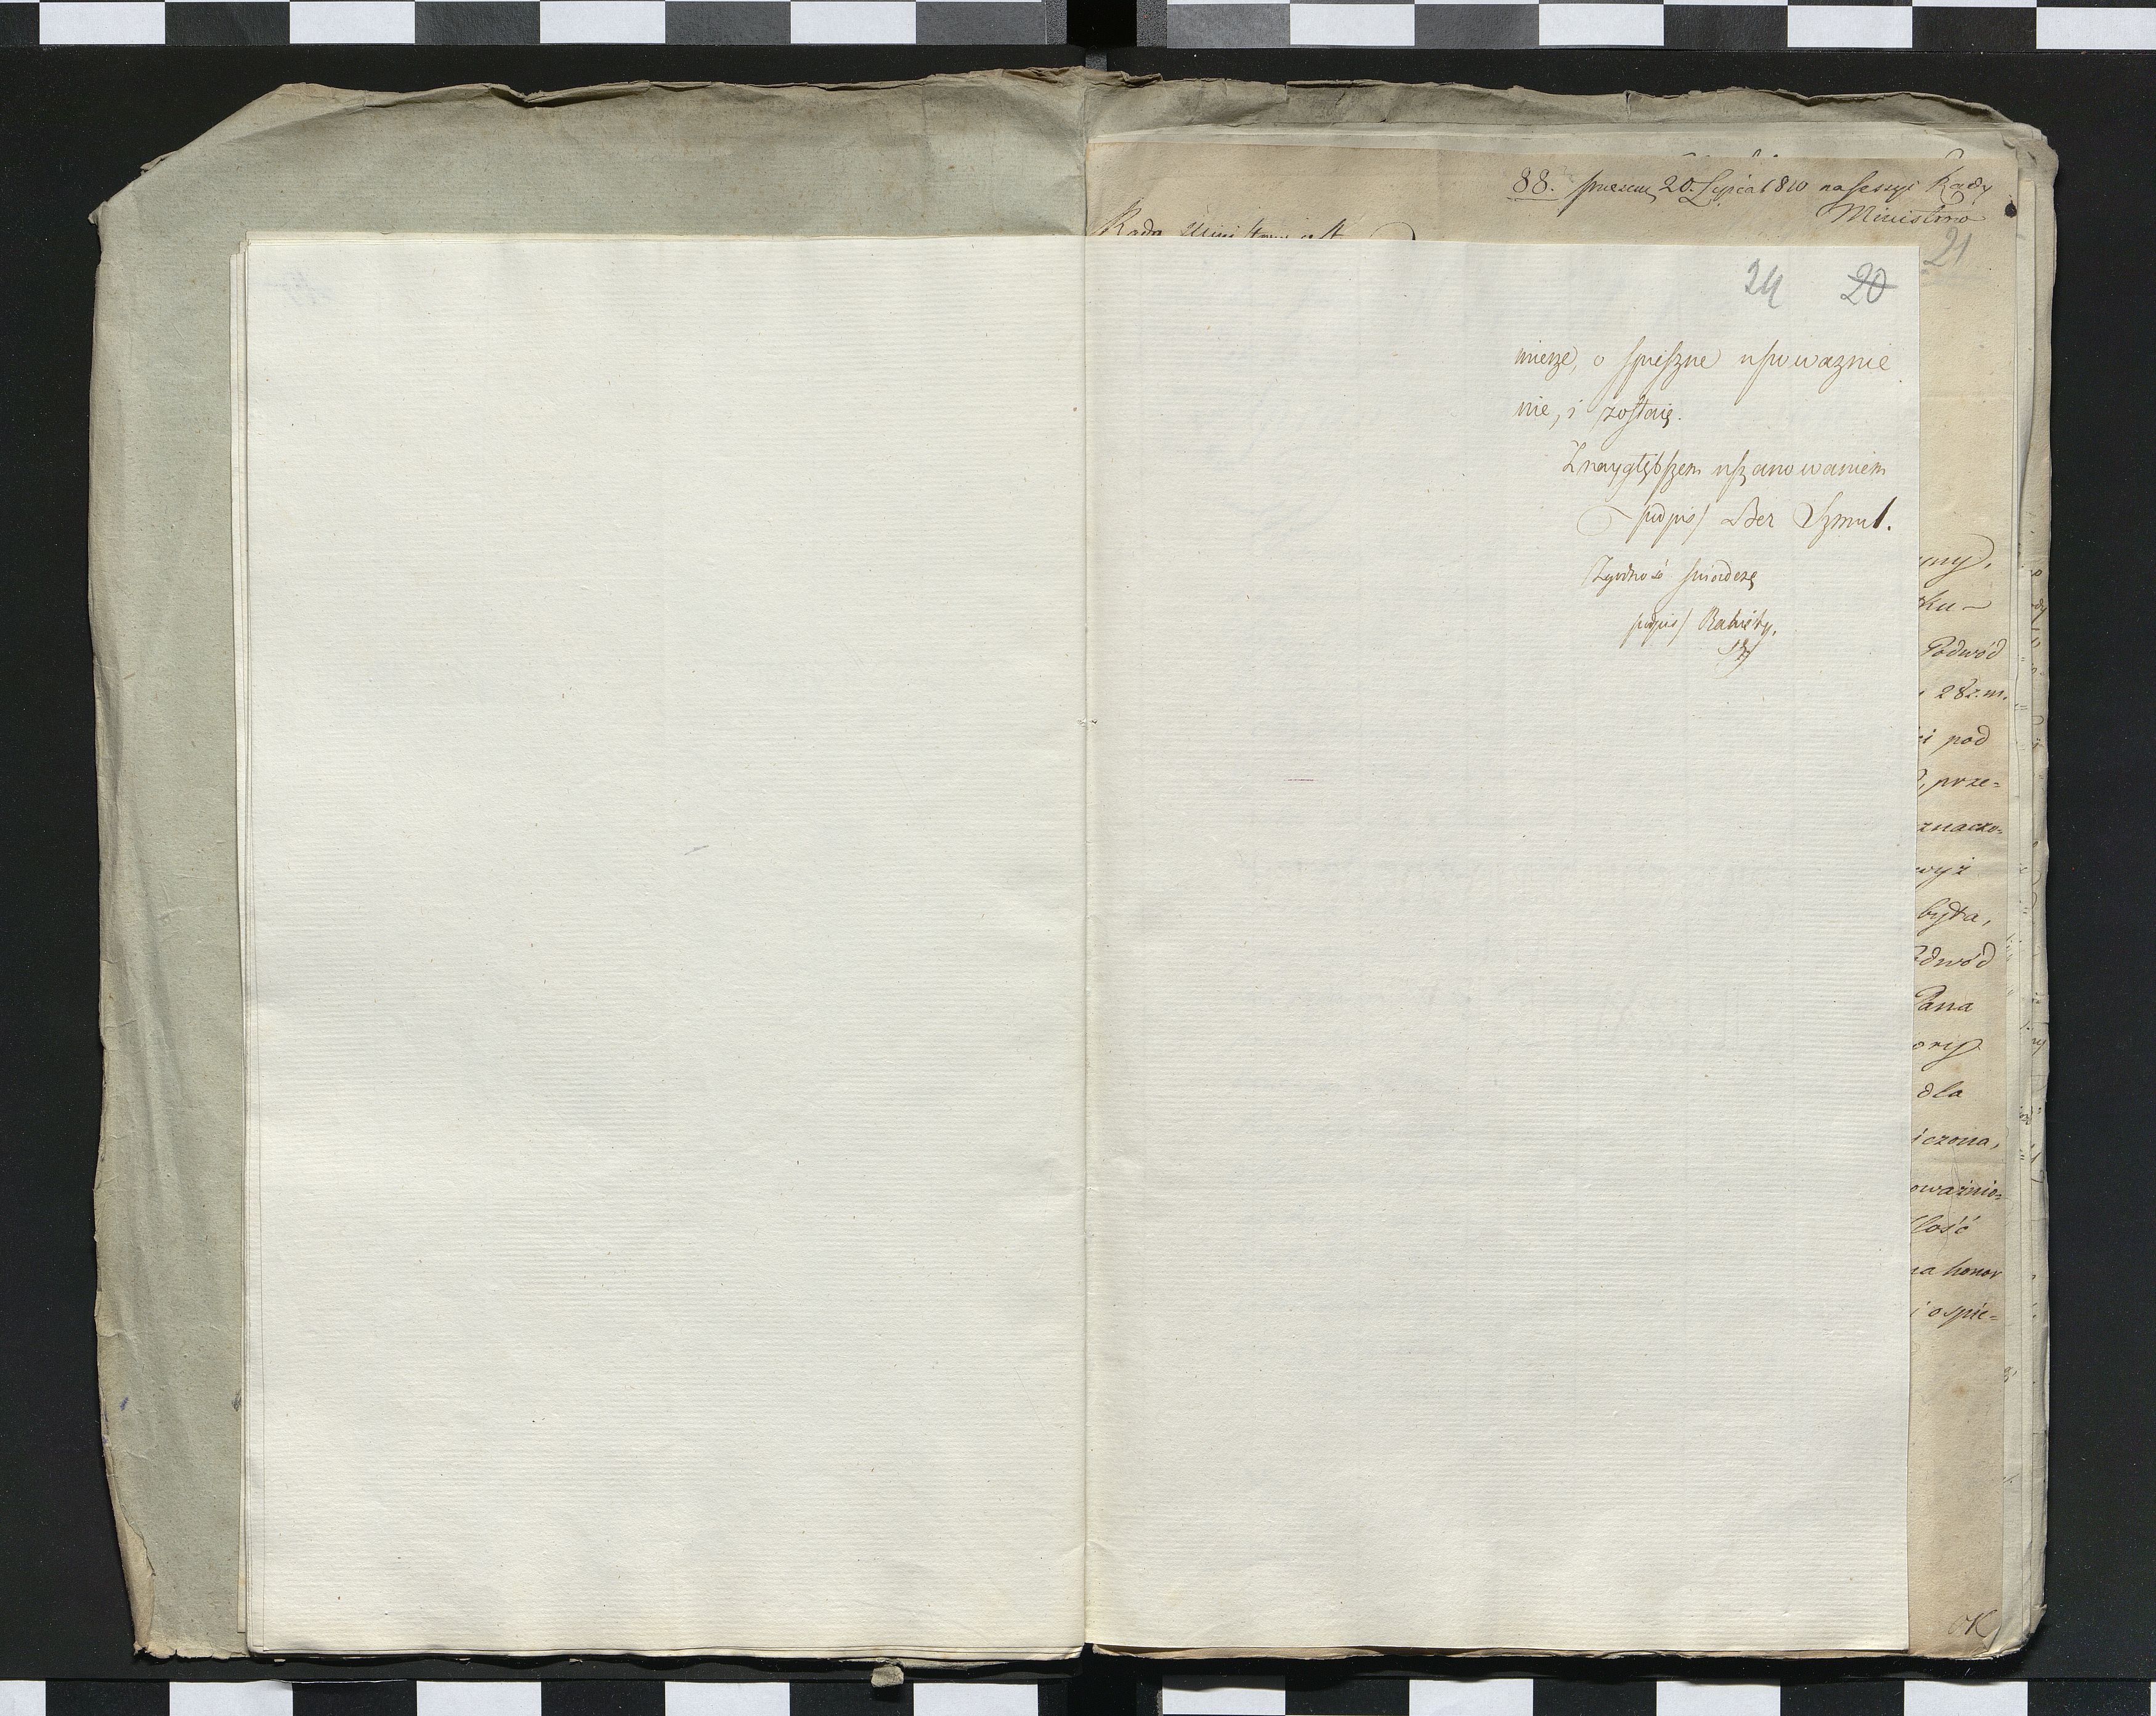 88. praesen 20. Lipca 1810 na sessyi Rady
Ministrow
Rada Ministrow
21
24 20
mierze, o spieszne upoważnie
nie, i zostaię.
Z naygłębszem uszanowaniem
podpis/ Ber Szmul.
Zgodność świadczę
podpis/
ny.
ku-
Podwód
28. z. m.
i pod
prze=
znaczo=
wyż
była,
Podwód
Pana
ory
dla
iczona,
oważnio=
lość
na honor
i o spie=